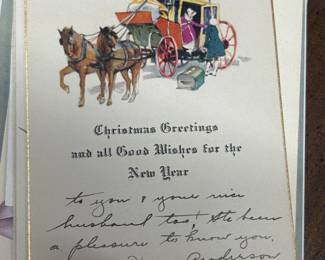 Christmas Greetings
and all Good Wishes for the
New Year
to you & your nice
husband too! Its been
a pleasure to know you.
Anderson